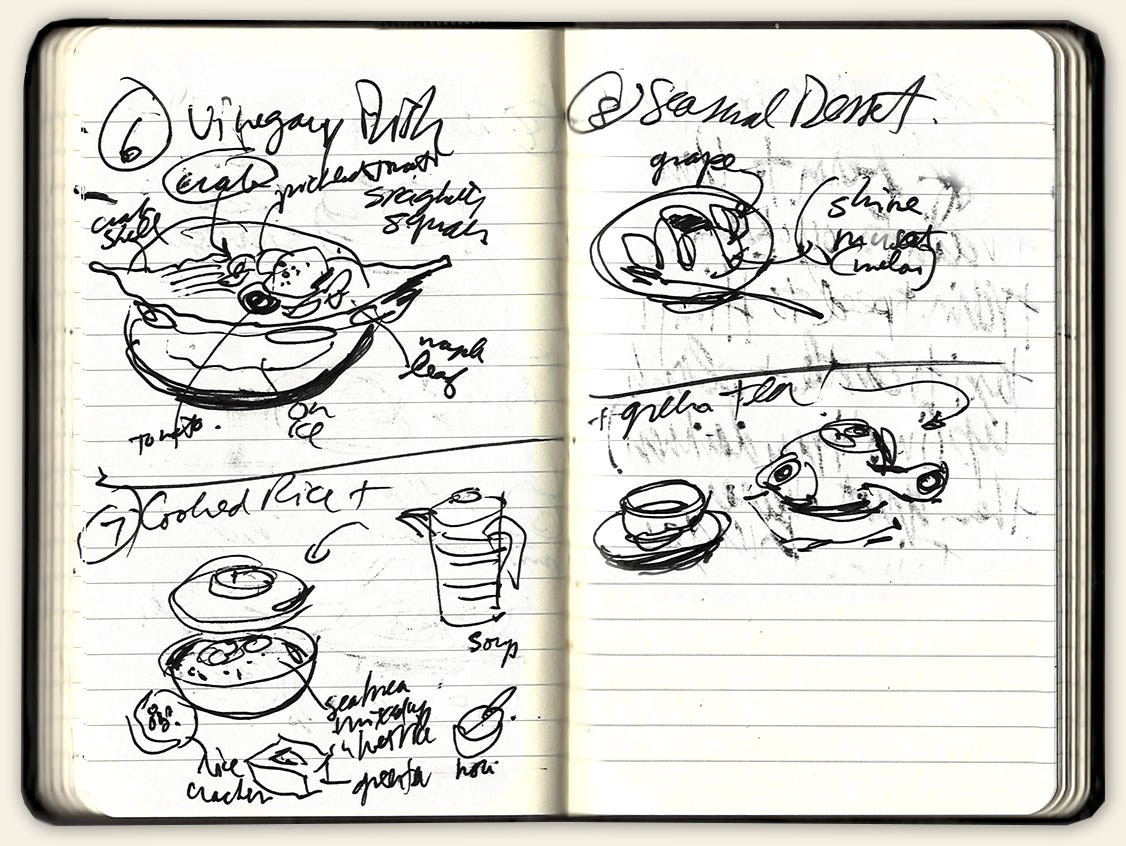 6 Vinegary Dish
crab
pickled tomato
spaghetti
squash
crab
shell
maple
leaf
tomato.
on
ice
7 Cooked Rice +
soup
seabream
mixed up
rice
cracker
green tea
nori
8 Seasonal Dessert.
grape
shine
muscat
(melon)
+ green tea